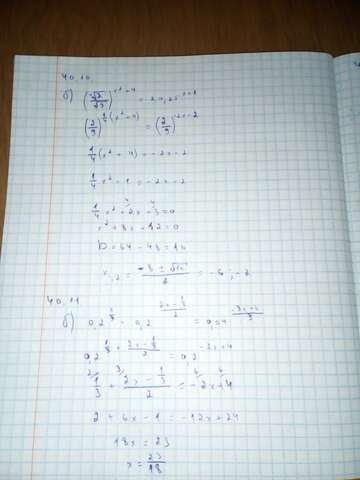 40.10
б) (√2/√3)^(x²+4) = 20,25^(x+1)
(2/3)^(1/4(x²-4)) = (2/3)^(-2x-2)
1/4(x² - 4) = -2x-2
1/4x² - 1 = -2x-2
1/4x² + 2x - 3 = 0
x² + 8x + 12 = 0
D = 64 - 48 = 16
x1,2 = (-8 ± √16)/2 = -6; -2
40.11
б) 0,2^(1/3) · 0,2^((2x - 1/3)/2) = 0,04^((-3x+6)/3)
0,2^(1/3 + (2x - 1/3)/2) = 0,2^(-2x+4)
1/3 + (2x - 1/3)/2 = -2x+4
2 + 6x - 1 = -12x + 24
18x = 23
x = 23/18